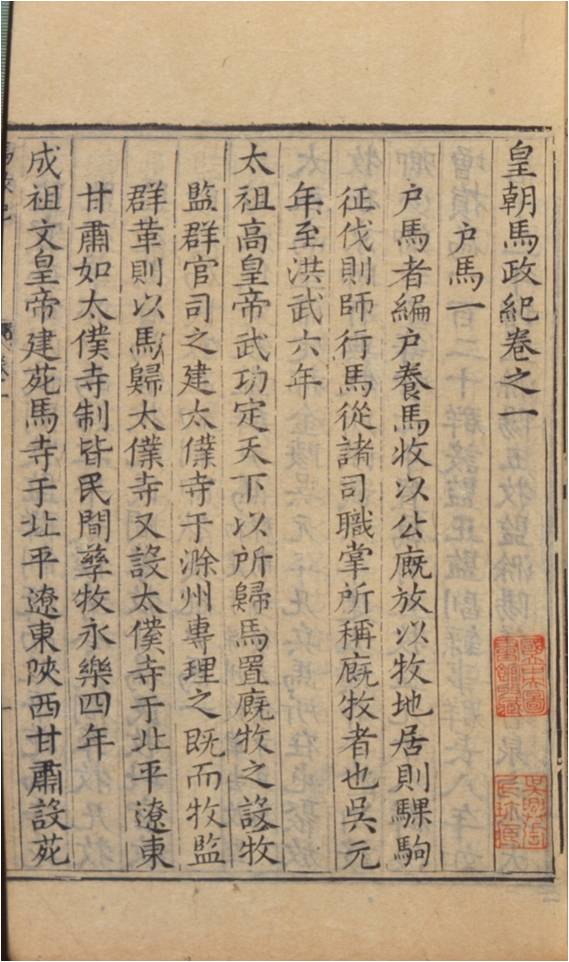 皇朝馬政紀卷之一
户馬一
户馬者編户養馬牧以公廐放以牧地居則騍駒
征伐則師行馬從諸司職掌所稱廐牧者也吳元
年至洪武六年
太祖高皇帝武功定天下以所歸馬置廐牧之設牧
監群官司之建太僕寺于滁州專理之既而牧監
群革則以馬歸太僕寺又設太僕寺于北平遼東
甘肅如太僕寺制皆民間孳牧永樂四年
成祖文皇帝建苑馬寺于北平遼東陝西甘肅設苑